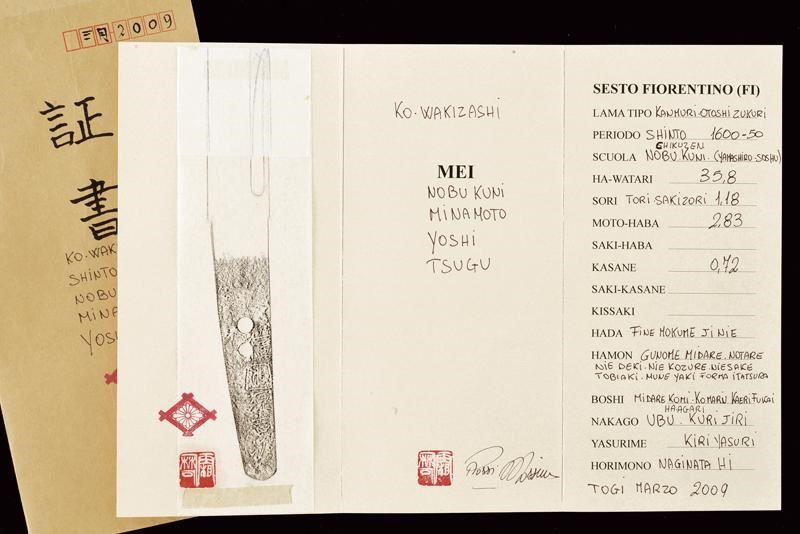 三月2009
証
書
KO-WAK
SHINTO
NOBU
MINA
YOSH
KO-WAKIZASHI
MEI
NOBU KUNI
MINAMOTO
YOSHI
TSUGU
SESTO FIORENTINO (FI)
LAMA TIPO KANMURI-OTOSHI ZUKURI
PERIODO SHINTO 1600-50
CHIKUZEN
SCUOLA NOBU KUNI. (YAMASHIRO-SOSHU)
HA-WATARI 35,8
SORI TORI-SAKIZORI 1,18
MOTO-HABA 2,83
SAKI-HABA
KASANE 0,72
SAKI-KASANE
KISSAKI
HADA FINE MOKUME JI NIE
HAMON GUNOME MIDARE. NOTARE
NIE DEKI. NIE KOZURE. NIESAKE
TOBIAKI. MUNE YAKI FORMA ITATSURA
BOSHI MIDARE KOMI. KOMARU KAERI FUKAI
HAAGARI
NAKAGO UBU. KURI JIRI
YASURIME KIRI YASURI
HORIMONO NAGINATA HI
TOGI MARZO 2009